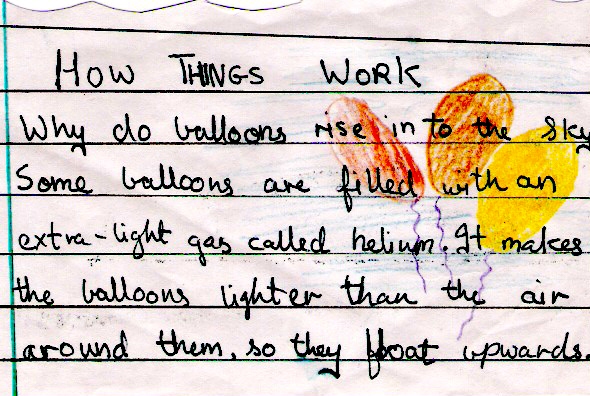 HOW THINGS WORK
Why do balloons rise in to the sky
Some balloons are filled with an
extra-light gas called helium. It makes
the balloons lighter than the air
around them, so they float upwards.